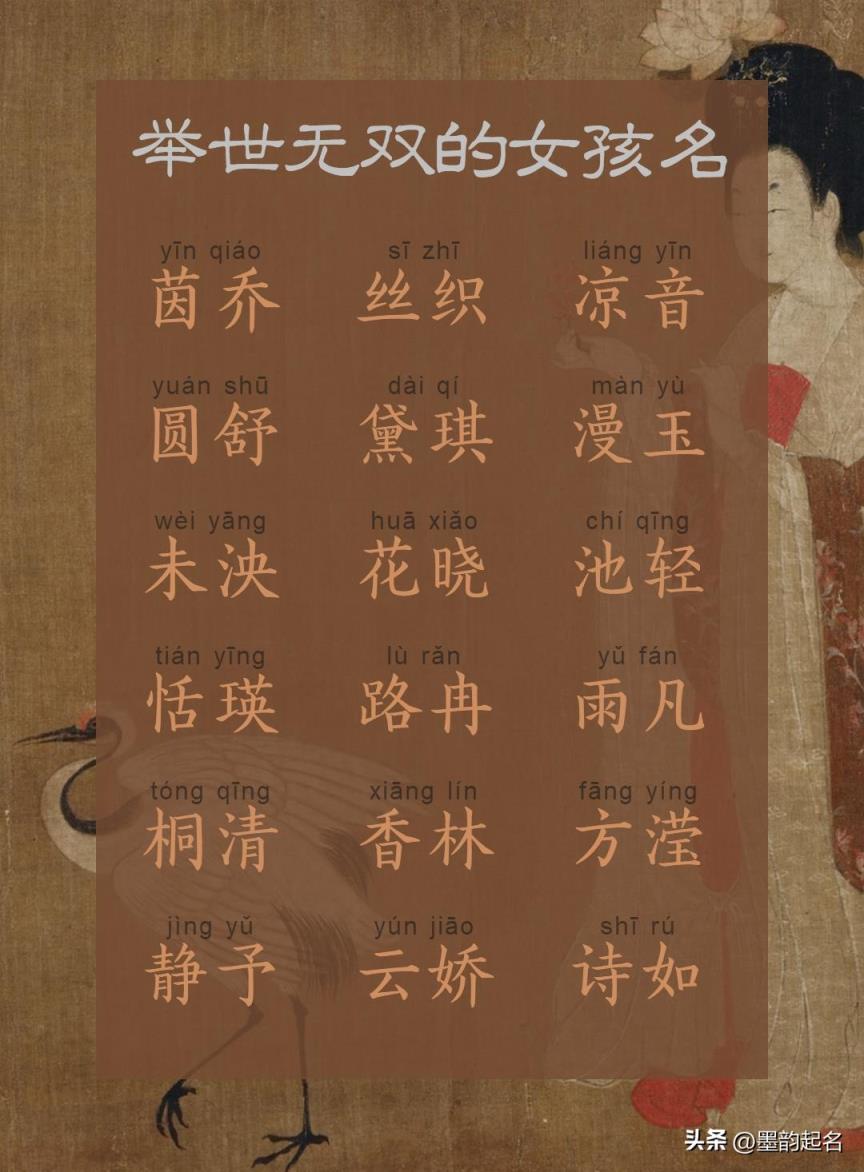 举世无双的女孩名
yīn qiáo sī zhī liáng yīn
茵乔 丝织 凉音
yuán shū dài qí màn yù
圆舒 黛琪 漫玉
wèi yāng huā xiǎo chí qīng
未泱 花晓 池轻
tián yīng lù rǎn yǔ fán
恬瑛 路冉 雨凡
tóng qīng xiāng lín fāng yíng
桐清 香林 方滢
jìng yǔ yún jiāo shī rú
静予 云娇 诗如
头条 @墨韵起名